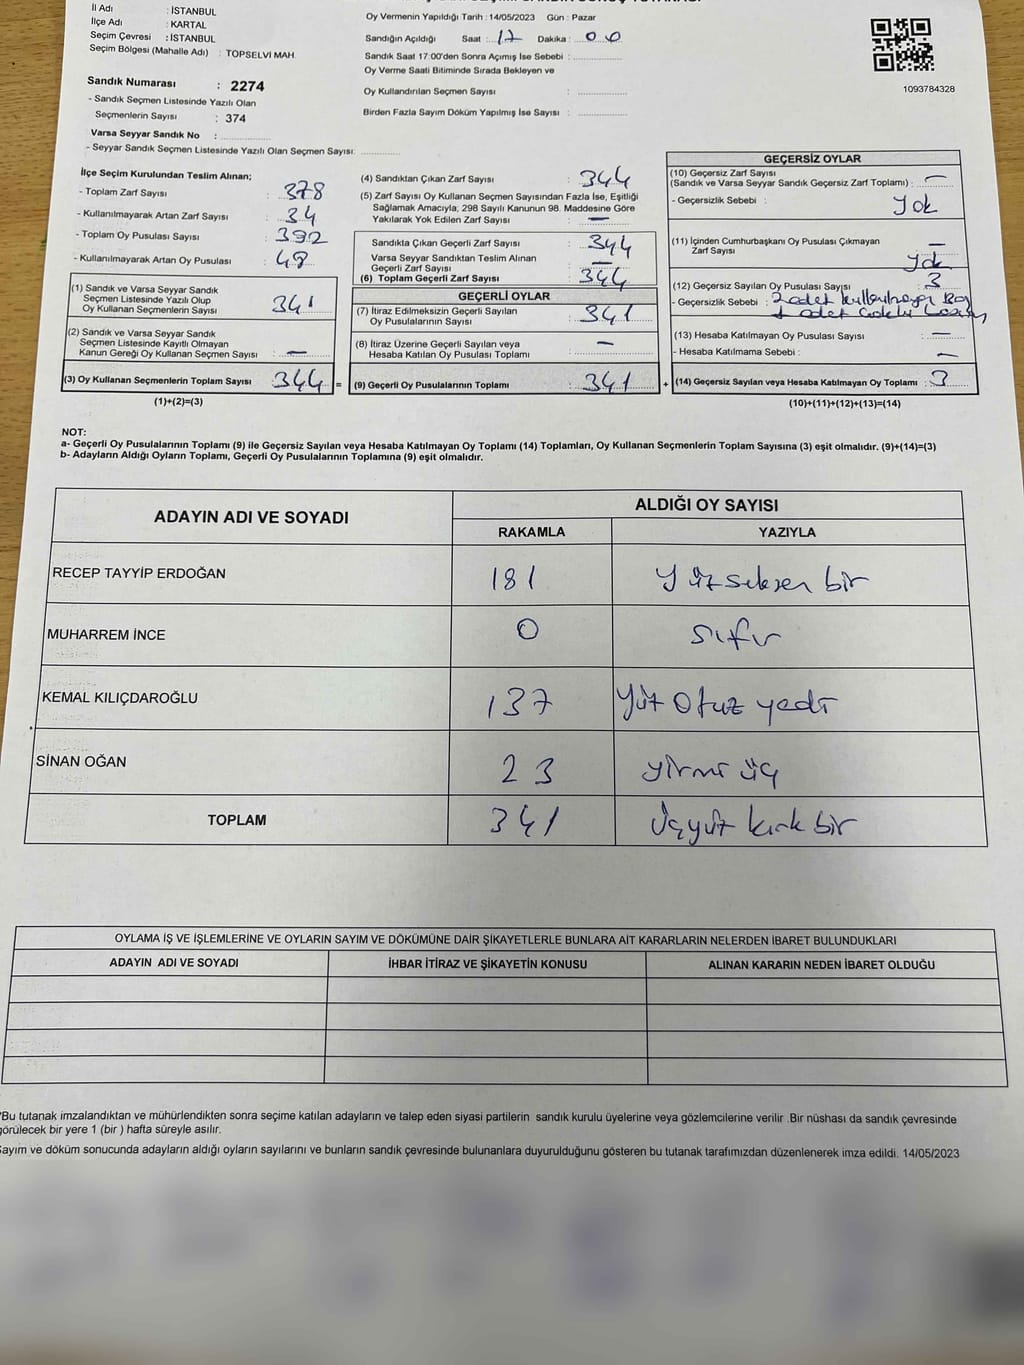 İl Adı : İSTANBUL
İlçe Adı : KARTAL
Seçim Çevresi : İSTANBUL
Seçim Bölgesi (Mahalle Adı) : TOPSELVİ MAH.
Sandık Numarası : 2274
- Sandık Seçmen Listesinde Yazılı Olan
Seçmenlerin Sayısı : 374
Varsa Seyyar Sandık No :
- Seyyar Sandık Seçmen Listesinde Yazılı Olan Seçmen Sayısı:
Oy Vermenin Yapıldığı Tarih : 14/05/2023 Gün : Pazar
Sandığın Açıldığı Saat : 17 Dakika : 00
Sandık Saat 17:00'den Sonra Açımış İse Sebebi :
Oy Verme Saati Bitiminde Sırada Bekleyen ve
Oy Kullandırılan Seçmen Sayısı :
Birden Fazla Sayım Döküm Yapılmış İse Sayısı :
1093784328
İlçe Seçim Kurulundan Teslim Alınan;
- Toplam Zarf Sayısı : 378
- Kullanılmayarak Artan Zarf Sayısı : 34
- Toplam Oy Pusulası Sayısı : 392
- Kullanılmayarak Artan Oy Pusulası : 48
(1) Sandık ve Varsa Seyyar Sandık
Seçmen Listesinde Yazılı Olup
Oy Kullanan Seçmenlerin Sayısı : 341
(2) Sandık ve Varsa Seyyar Sandık
Seçmen Listesinde Kayıtlı Olmayan
Kanun Gereği Oy Kullanan Seçmen Sayısı : —
(3) Oy Kullanan Seçmenlerin Toplam Sayısı 344 =
(1)+(2)=(3)
(4) Sandıktan Çıkan Zarf Sayısı : 344
(5) Zarf Sayısı Oy Kullanan Seçmen Sayısından Fazla İse, Eşitliği
Sağlamak Amacıyla; 298 Sayılı Kanunun 98. Maddesine Göre
Yakılarak Yok Edilen Zarf Sayısı : —
Sandıkta Çıkan Geçerli Zarf Sayısı : 344
Varsa Seyyar Sandıktan Teslim Alınan
Geçerli Zarf Sayısı : —
(6) Toplam Geçerli Zarf Sayısı : 344
GEÇERLİ OYLAR
(7) İtiraz Edilmeksizin Geçerli Sayılan
Oy Pusulalarının Sayısı : 341
(8) İtiraz Üzerine Geçerli Sayılan veya
Hesaba Katılan Oy Pusulası Toplamı : —
(9) Geçerli Oy Pusulalarının Toplamı : 341 +
GEÇERSİZ OYLAR
(10) Geçersiz Zarf Sayısı
(Sandık ve Varsa Seyyar Sandık Geçersiz Zarf Toplamı) : —
- Geçersizlik Sebebi : Yok
(11) İçinden Cumhurbaşkanı Oy Pusulası Çıkmayan
Zarf Sayısı —
Yok
(12) Geçersiz Sayılan Oy Pusulası Sayısı : 3
- Geçersizlik Sebebi : 2 adet
1 adet
(13) Hesaba Katılmayan Oy Pusulası Sayısı : —
- Hesaba Katılmama Sebebi : —
(14) Geçersiz Sayılan veya Hesaba Katılmayan Oy Toplamı : 3
(10)+(11)+(12)+(13)=(14)
NOT:
a- Geçerli Oy Pusulalarının Toplamı (9) ile Geçersiz Sayılan veya Hesaba Katılmayan Oy Toplamı (14) Toplamları, Oy Kullanan Seçmenlerin Toplam Sayısına (3) eşit olmalıdır. (9)+(14)=(3)
b- Adayların Aldığı Oyların Toplamı, Geçerli Oy Pusulalarının Toplamına (9) eşit olmalıdır.
ADAYIN ADI VE SOYADI
ALDIĞI OY SAYISI
RAKAMLA YAZIYLA
RECEP TAYYİP ERDOĞAN 181 Yüz seksen bir
MUHARREM İNCE 0 sıfır
KEMAL KILIÇDAROĞLU 137 Yüz Otuz yedi
SİNAN OĞAN 23 yirmi üç
TOPLAM 341 Üçyüz kırk bir
OYLAMA İŞ VE İŞLEMLERİNE VE OYLARIN SAYIM VE DÖKÜMÜNE DAİR ŞİKAYETLERLE BUNLARA AİT KARARLARIN NELERDEN İBARET BULUNDUKLARI
ADAYIN ADI VE SOYADI İHBAR İTİRAZ VE ŞİKAYETİN KONUSU ALINAN KARARIN NEDEN İBARET OLDUĞU
*Bu tutanak imzalandıktan ve mühürlendikten sonra seçime katılan adayların ve talep eden siyasi partilerin sandık kurulu üyelerine veya gözlemcilerine verilir .Bir nüshası da sandık çevresinde
görülecek bir yere 1 (bir ) hafta süreyle asılır.
Sayım ve döküm sonucunda adayların aldığı oyların sayılarını ve bunların sandık çevresinde bulunanlara duyurulduğunu gösteren bu tutanak tarafımızdan düzenlenerek imza edildi. 14/05/2023